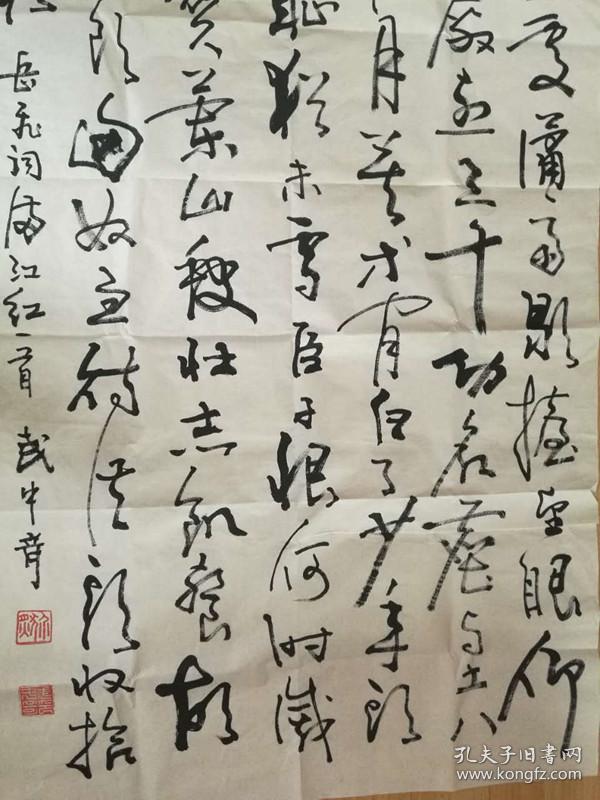 處瀟、雨歇擡望眼仰
激烈三十功名塵与土八
月莫等閒白了少年頭
恥猶未雪臣子恨何時滅
賀蘭山缺壯志飢餐胡
飲匈奴血待從頭收拾
岳飛詞滿江紅一首 武中奇
孔夫子旧書网
www.kongfz.com